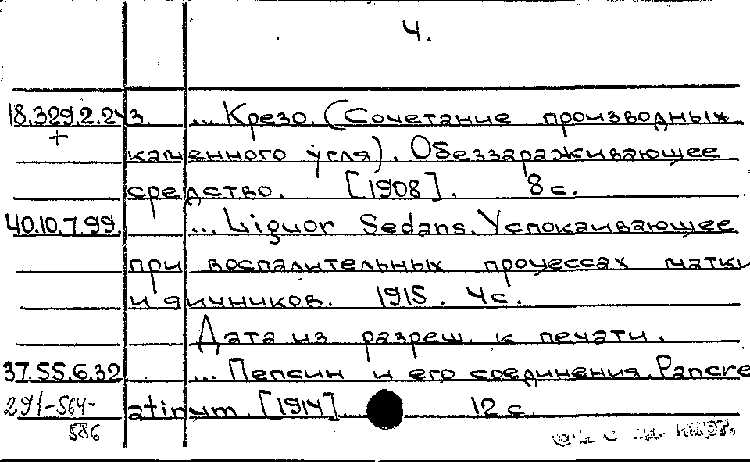 4.
18.329.2.243. ... Крезо. (Сочетание производных
+ каменного угля). Обеззараживающее
средство. [1908]. 8 с.
40.10.7.99. ... Liguor Sedans. Успокаивающее
при воспалительных процессах матки
и яичников. 1915. 4 с.
Дата из разреш. к печати.
37.55.6.32 ... Пепсин и его соединения. Pancre
291-564- atinum. [1914] 12 с.
586